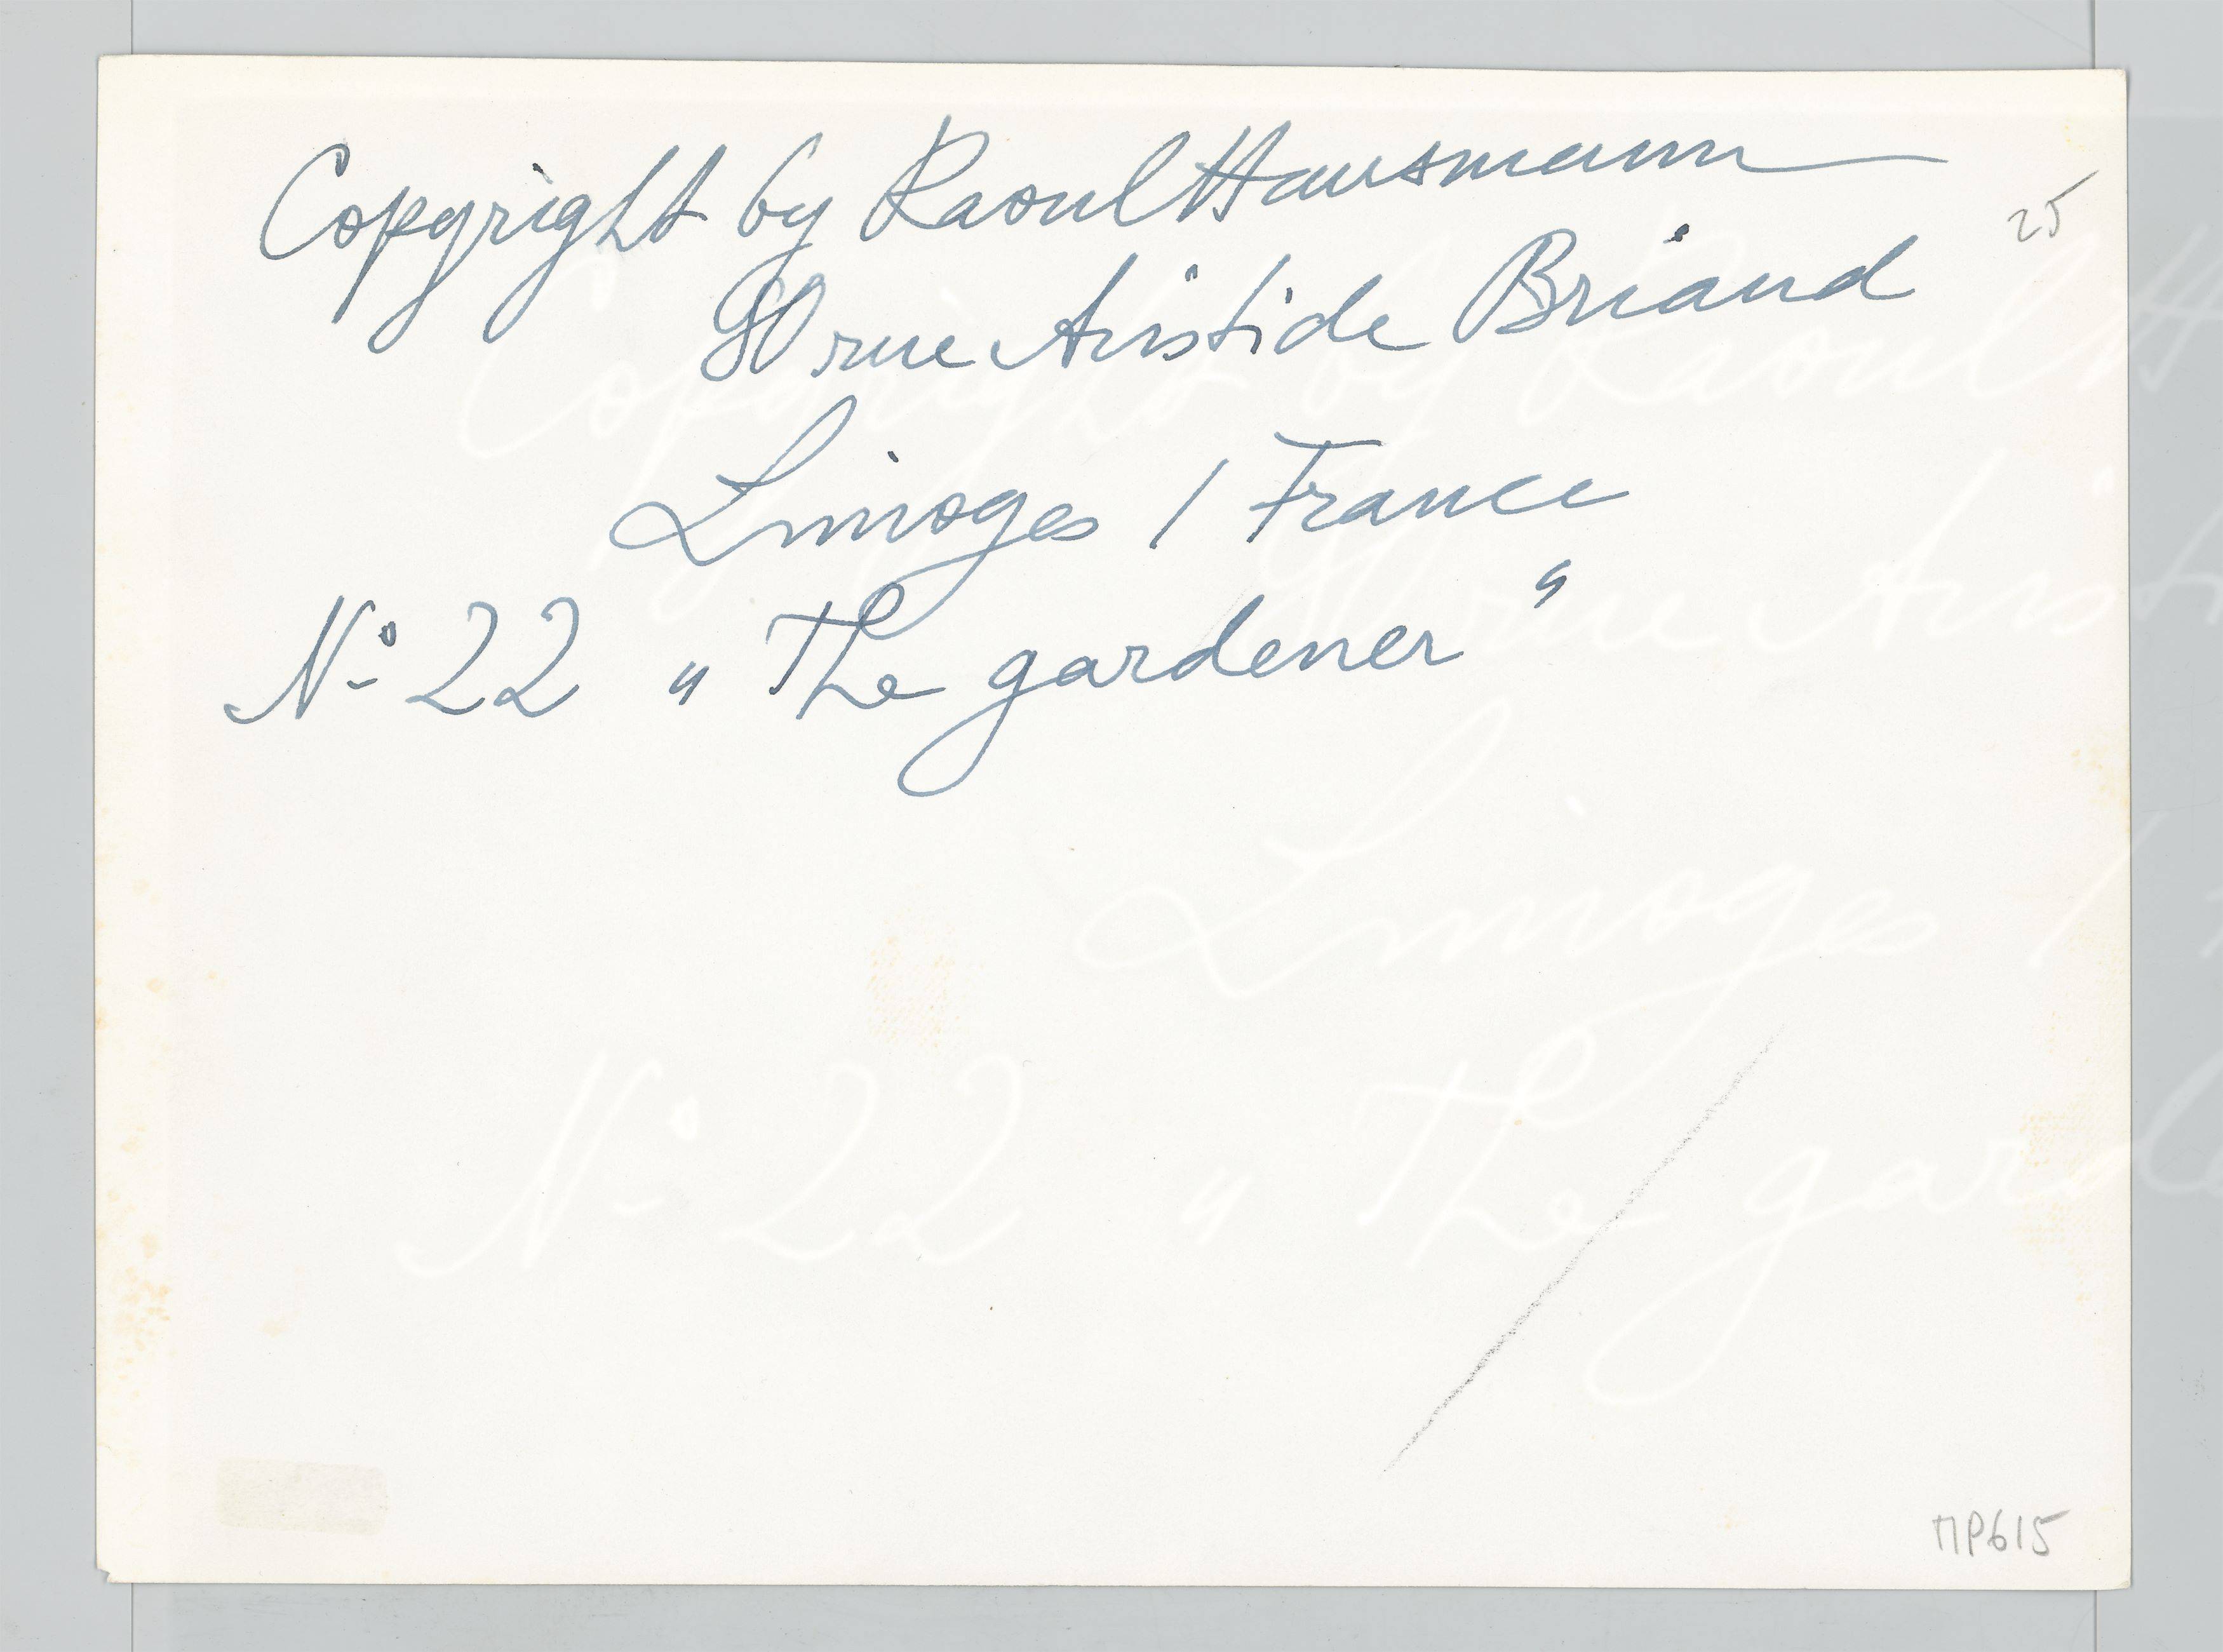 Copyright by Raoul Hausmann
25
80 rue Aristide Briand
Limoges / France
N° 22 „The gardener“
MP615